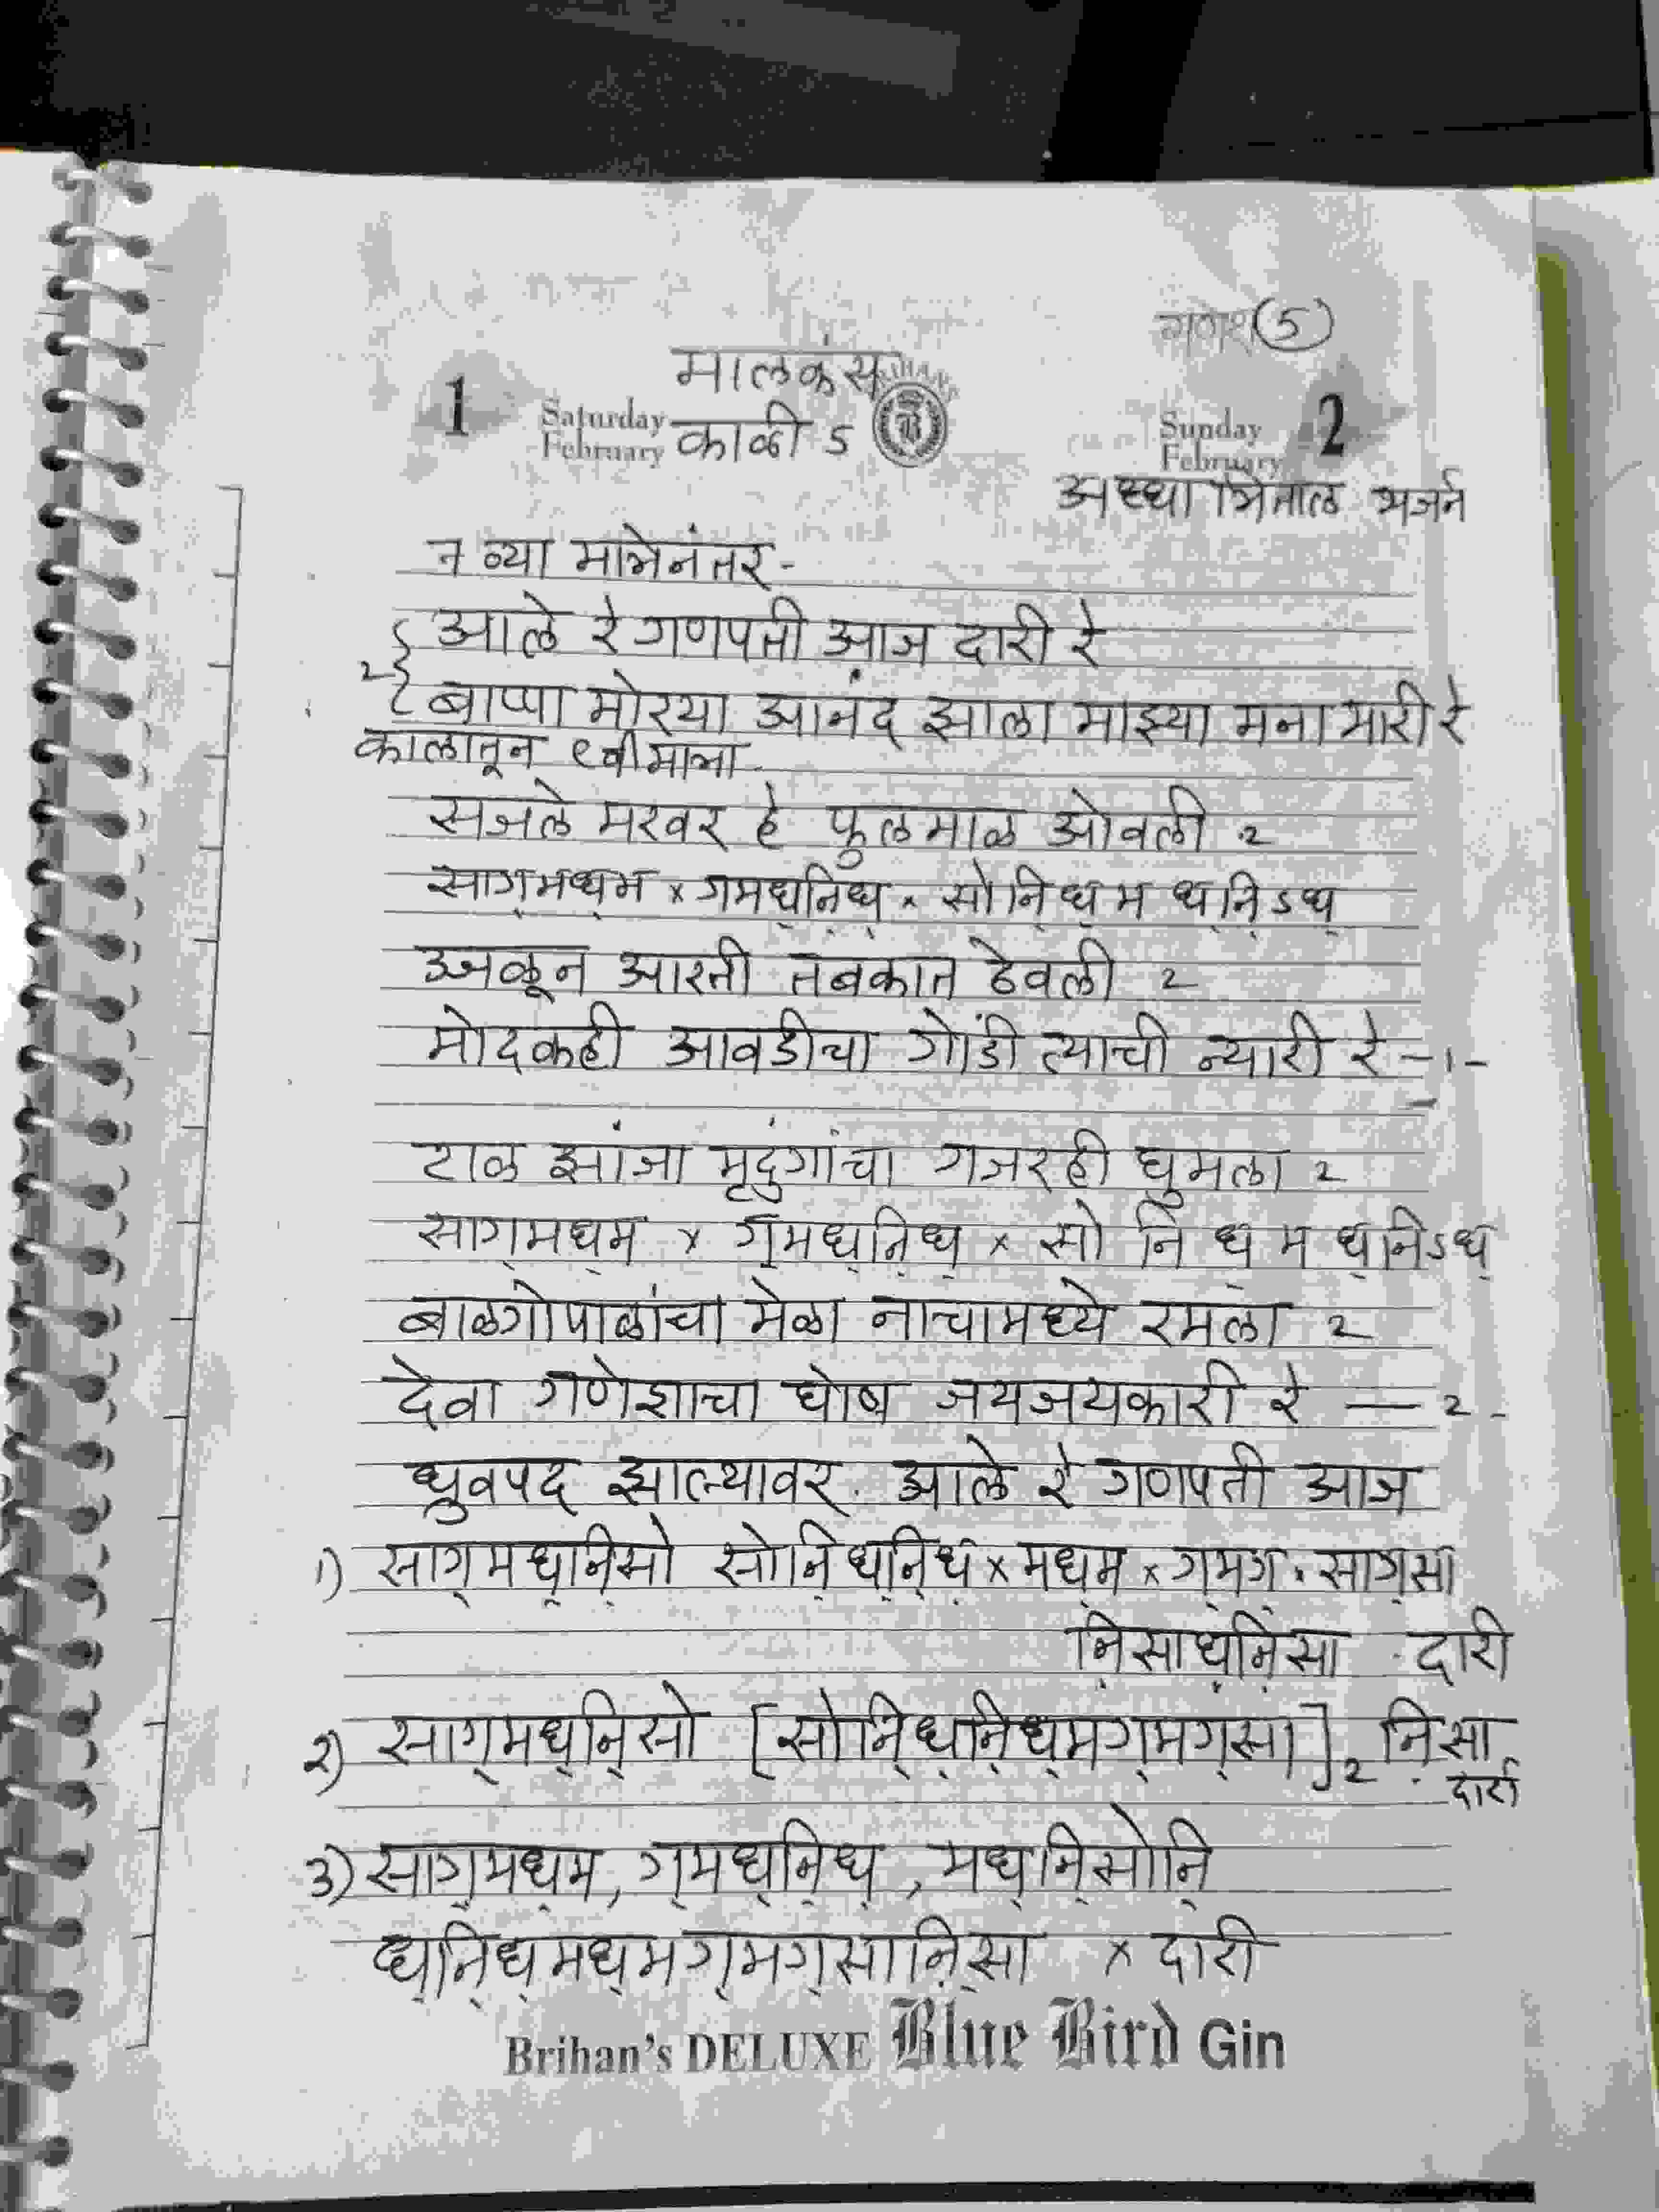 गणेश (5)
मालकंस BRIHANS
1 Saturday February काळी 5 B Sunday February 2
अध्धा त्रिताल भजन
न व्या मात्रेनंतर -
आले रे गणपती आज दारी रे
2 बाप्पा मोरया आनंद झाला माझ्या मना भारी रे
कालातून ९वी मात्रा
सजले मखर हे फुलमाळ ओवली 2
साग्मध्म × गमध्निध् × सों नि् ध् म ध्नि् ऽ ध्
उजळून आरती तबकात ठेवली 2
मोदकही आवडीचा गोडी त्याची न्यारी रे -1-
टाळ झांजा मृदुंगांचा गजरही घुमला 2
साग्मध्म × ग्मध्नि्ध् × सों नि ध् म ध्निऽध्
बाळगोपाळांचा मेळा नाचामध्ये रमला 2
देवा गणेशाचा घोष जयजयकारी रे — 2 -
ध्रुवपद झाल्यावर. आले रे गणपती आज
1) साग्मध्नि्सों सोंनि्ध्नि्ध् × मध्म × ग्मग् × साग्सा
नि्साध्नि्सा दारी
2) साग्मध्नि्सों [सोंनि्ध्नि्ध्मग्मग्सा]2 नि्सा
दारी
3) साग्मध्म, ग्मध्नि्ध्, मध्नि्सोंनि्
ध्नि्ध्मध्मग्मग्सानि्सा × दारी
Brihan's DELUXE Blue Bird Gin